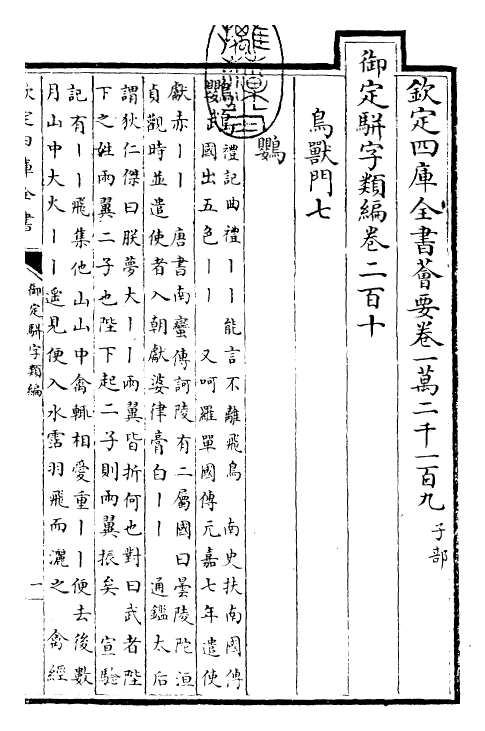 欽定四庫全書薈要卷一萬二千一百九 子部
御定駢字類編卷二百十
鳥獸門七
鸚
鸚鵡 禮記曲禮丨丨能言不離飛鳥 南史扶南國傳
國出五色丨丨 又呵羅單國傳元嘉七年遣使
獻赤丨丨 唐書南蠻傳訶陵有二屬國曰曇陵陀洹
貞觀時並遣使者入朝獻婆律膏白丨丨 通鑑太后
謂狄仁傑曰朕夢大丨丨兩翼皆折何也對曰武者陛
下之姓兩翼二子也陛下起二子則兩翼振矣 宣驗
記有丨丨飛集他山山中禽輒相愛重丨丨便去後數
月山中大火丨丨遙見便入水霑羽飛而灑之 禽經
欽定四庫全書
御定駢字類編
一